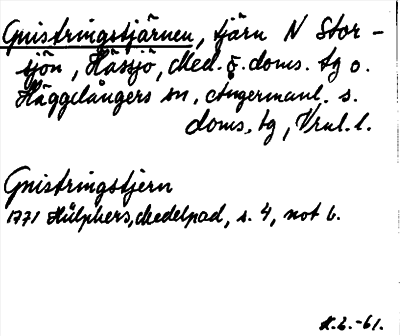 Gnistringstjärnen, tjärn N Stor-
sjön, Hässjö, Med. ö. doms. tg o.
Häggdångers sn, Ångermanl. s.
doms. tg, Vrnl. l.
Gnistringstjern
1771 Hülphers, Medelpad, s. 4, not b.
K.L.-61.